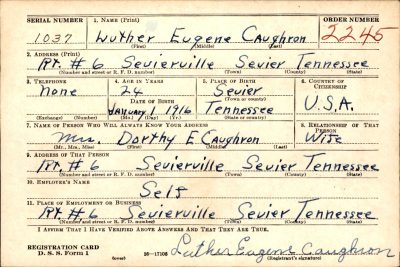 SERIAL NUMBER 1. NAME (Print) ORDER NUMBER
1037 Luther Eugene Caughron 2245
(First) (Middle) (Last)
2. ADDRESS (Print)
Rt. #6 Sevierville Sevier Tennessee
(Number and street or R. F. D. number) (Town) (County) (State)
3. TELEPHONE 4. AGE IN YEARS 5. PLACE OF BIRTH 6. COUNTRY OF CITIZENSHIP
None 24 Sevier U.S.A.
(Town or county)
DATE OF BIRTH
January 1, 1916 Tennessee
(Exchange) (Number) (Mo.) (Day) (Yr.) (State or country)
7. NAME OF PERSON WHO WILL ALWAYS KNOW YOUR ADDRESS 8. RELATIONSHIP OF THAT PERSON
Mrs. Dorthy E Caughron Wife
(Mr., Mrs., Miss) (First) (Middle) (Last)
9. ADDRESS OF THAT PERSON
Rt. #6 Sevierville Sevier Tennessee
(Number and street or R. F. D. number) (Town) (County) (State)
10. EMPLOYER'S NAME
Self
11. PLACE OF EMPLOYMENT OR BUSINESS
Rt. #6 Sevierville Sevier Tennessee
(Number and street or R. F. D. number) (Town) (County) (State)
I AFFIRM THAT I HAVE VERIFIED ABOVE ANSWERS AND THAT THEY ARE TRUE.
REGISTRATION CARD
D. S. S. Form 1 (over) 16—17105 Luther Eugene Caughron
(Registrant's signature)